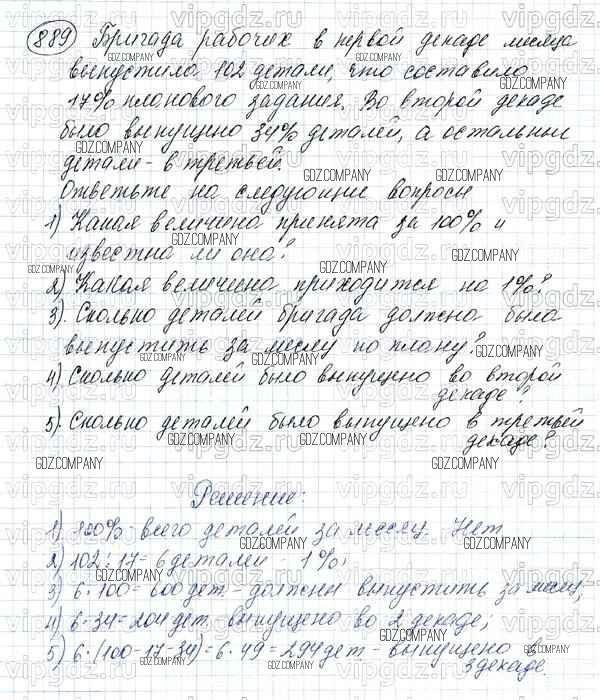 889 Бригада рабочих в первой декаде месяца
выпустила 102 детали, что составило
17% планового задания. Во второй декаде
было выпущено 34% деталей, а остальные
детали - в третьей.
Ответьте на следующие вопросы
1) Какая величина принята за 100% и
известна ли она?
2) Какая величина приходится на 1%?
3). Сколько деталей бригада должна была
выпустить за месяц по плану?
4) Сколько деталей было выпущено во второй
декаде?
5). Сколько деталей было выпущено в третьей
декаде?
Решение:
1) 100% - всего деталей за месяц. Нет
2) 102 : 17 = 6 деталей - 1%;
3) 6 · 100 = 600 дет - должны выпустить за месяц;
4) 6 · 34 = 204 дет. выпущено во 2 декаде;
5) 6 · (100 - 17 - 34) = 6 · 49 = 294 дет - выпущено в
3 декаде.